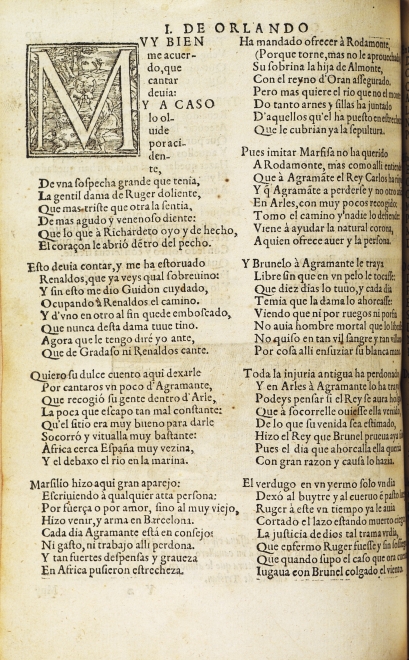 I. DE ORLANDO
MVY BIEN
me acuer-
do, que
cantar
deuia:
Y A CASO
lo ol-
uide
por aci-
den-
te,
De vna sospecha grande que tenia,
La gentil dama de Ruger doliente,
Que mas triste que otra la sentia,
De mas agudo y venenoso diente:
Que lo que à Richardeto oyo y de hecho,
El coraçon le abriò dẽtro del pecho.
Esto deuia contar, y me ha estoruado
Renaldos, que ya veys qual sobreuino:
Y sin esto me dio Guidon cuydado,
Ocupando à Renaldos el camino.
Y d'vno en otro al fin quede emboscado,
Que nunca desta dama tuue tino.
Agora que le tengo dirè yo ante,
Que de Gradaso ni Renaldos cante.
Quiero su dulce cuento aqui dexarle
Por cantaros vn poco d'Agramante,
Que recogiò su gente dentro d'Arle,
La poca que escapo tan mal constante:
Qu'el sitio era muy bueno para darle
Socorró y vitualla muy bastante:
Africa cerca España muy vezina,
Y el debaxo el rio en la marina.
Marsilio hizo aqui gran aparejo:
Escriuiendo à qualquier atta persona:
Por fuerça o por amor, sino al muy viejo,
Hizo venir, y arma en Barcelona.
Cada dia Agramante està en consejo:
Ni gasto, ni trabajo alli perdona.
Y tan fuertes despensas y graueza
En Africa pusieron estrecheza.
Ha mandado ofrecer à Rodamonte,
(Porque torne, mas no le
Su sobrina la hija de Almonte,
Con el reyno d'Oran assegurado.
Pero mas quiere el rio que no el
Do tanto arnes y sillas ha juntado
D'aquellos qu'el ha puesto en
Que le cubrian ya la sepultura.
Pues imitar Marfisa no ha querido
A Rodamonte, mas como alli
Que à Agramãte el Rey Carlos ha
Y q̃ Agramãte a perderse y no otro
En Arles, con muy pocos recogido:
Tomo el camino y nadie lo defiende:
Viene à ayudar la natural corona,
A quien ofrece auer y la persona.
Y Brunelo à Agramante le traya
Libre sin que en vn pelo le tocasse:
Que diez dias lo tuuo, y cada dia
Temia que la dama lo ahorcasse:
Viendo que ni por ruegos ni
No auia hombre mortal que lo
No quiso en tan vil sangre y tan
Por cosa alli ensuziar su blanca
Toda la injuria antigua ha perdonado
Y en Arles à Agramante lo ha
Podeys pensar si el Rey se aura
Que à socorrelle ouiesse ella venido,
De lo que su venida sea estimado,
Hizo el Rey que Brunel prueua aya
Pues el dia que ahorcalla ella
Con gran razon y causa lo hazia.
El verdugo en vn yermo solo vn dia
Dexò al buytre y al cueruo è pasto
Ruger à este vn tiempo ya le auia
Cortado el lazo estando muerto
La justicia de dios tal trama vrdia,
Que enfermo Ruger fuesse y sin
Que quando supo el caso que ora
Iugaua con Brunel colgado el viento.